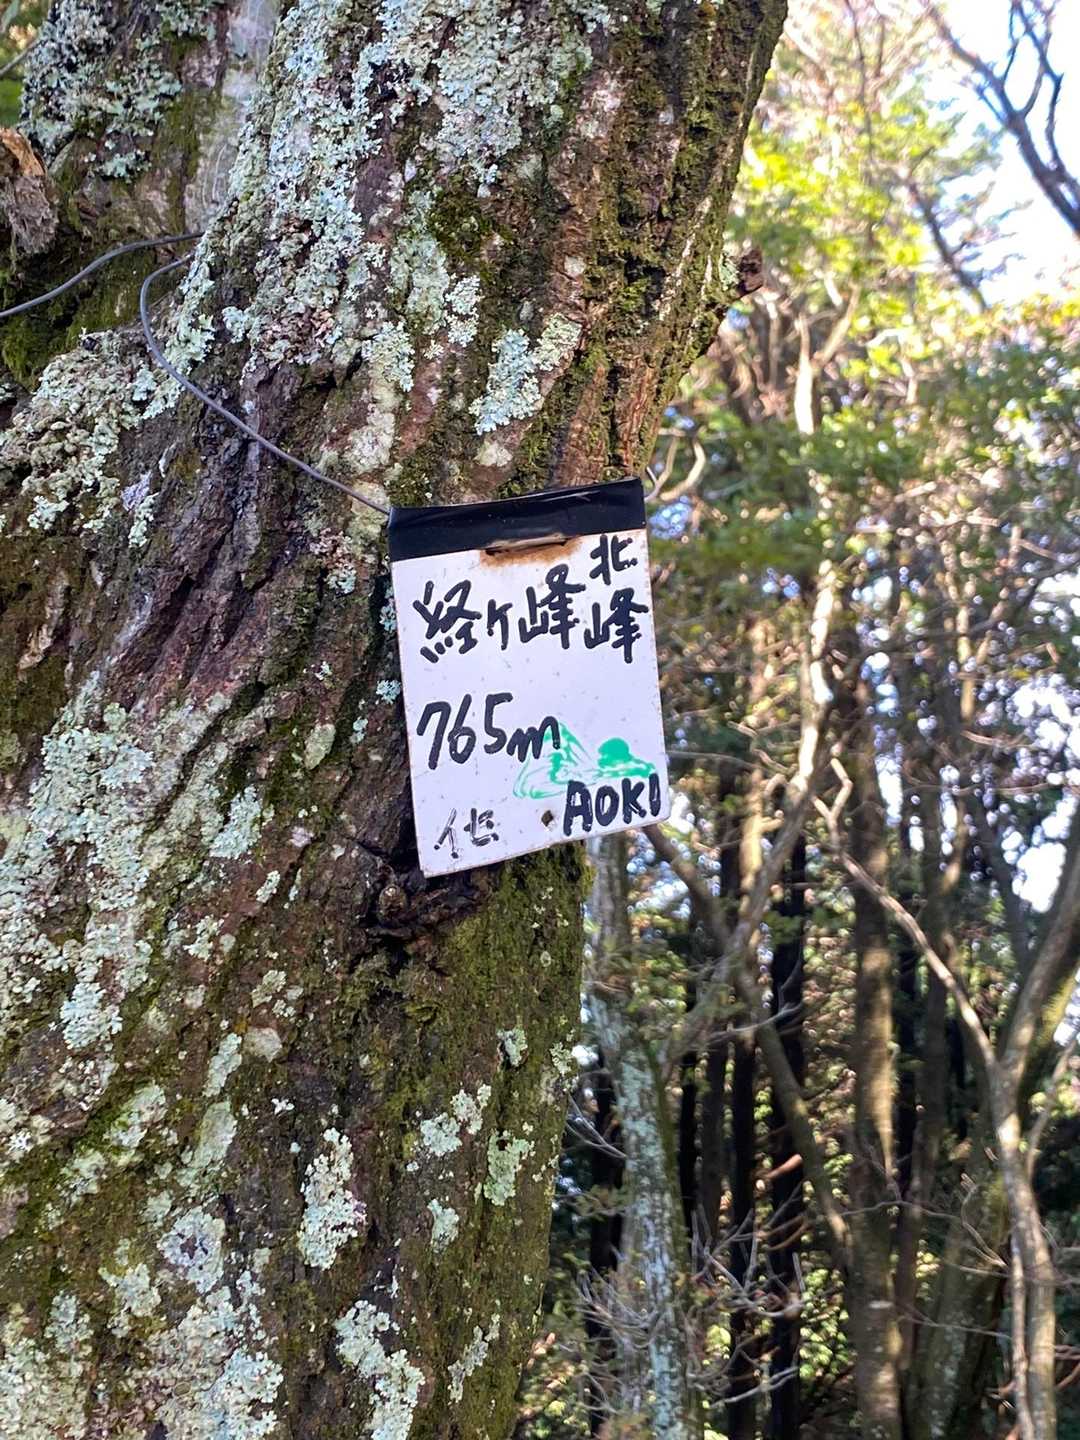 経ヶ峰北峰
765m
AOKI